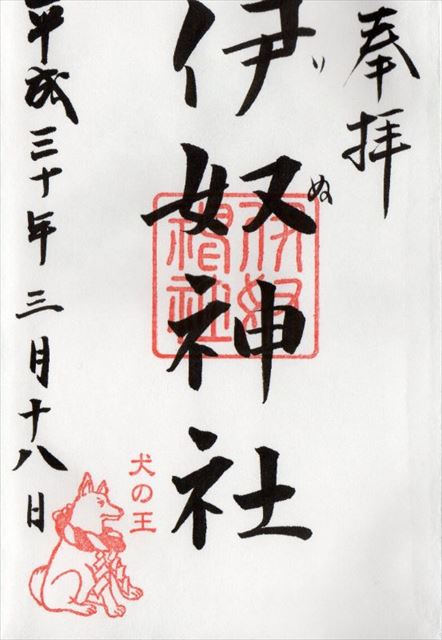 奉拝
伊奴神社
いぬ
伊奴神社
犬の王
平成三十年三月十八日